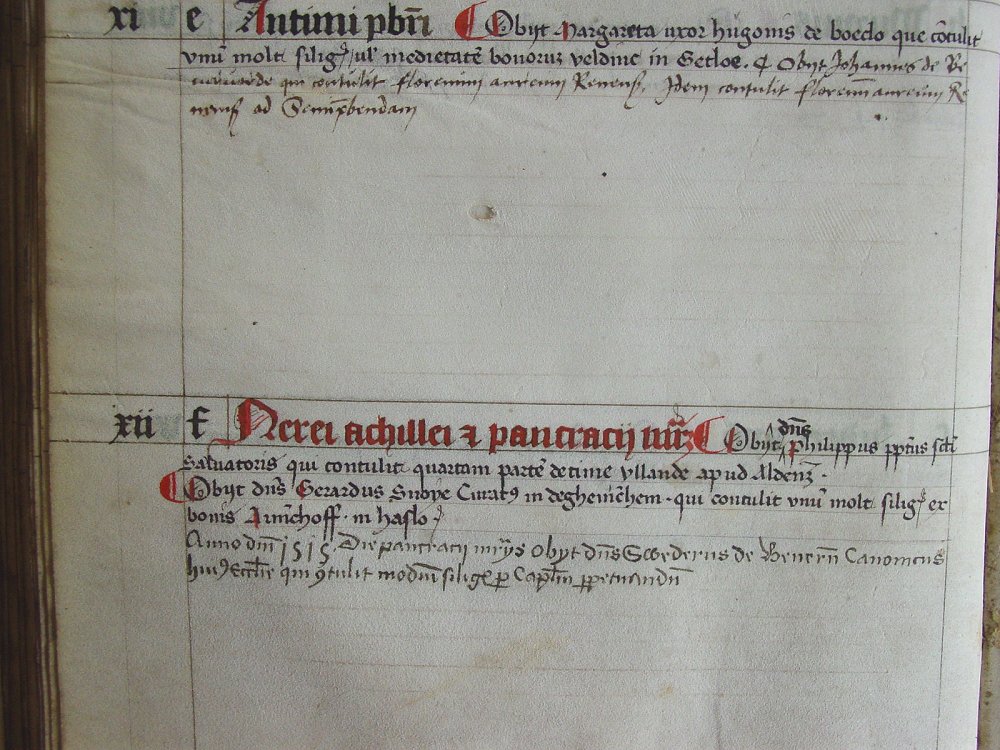 xi e Antimi pbri Obijt Margareta uxor hugonis de boedo que cōtulit
vnū molt siligꝭ ul' medietatē bonorum veldinc in Getloe. Obijt Johannes de Re
qui contulit florenum aureum Renenſ. Idem contulit florenū aureum Re
nenſ ad Semip̄bendam
xii f Nerei achillei ⁊ pancracij mr̄z Obijt dn̄s philippus ppt̄us sct̄i
Saluatoris qui contulit quartam partē decime yllande apud Aldenz̄.
Obijt dn̄s Gerardus Curatꝰ in deghenīchem. qui contulit vnū molt siligꝭ ex
bonis Arnīchoff. in haslo.
Anno dn̄i 1515 Die pancracij mr̄ys obijt dn̄s Swederus de Beuern̄ Canonicus
huiꝰ Eccl̄ie qui ꝯtulit modiū siligꝭ ꝑ Capl̄m ꝑpetuandū